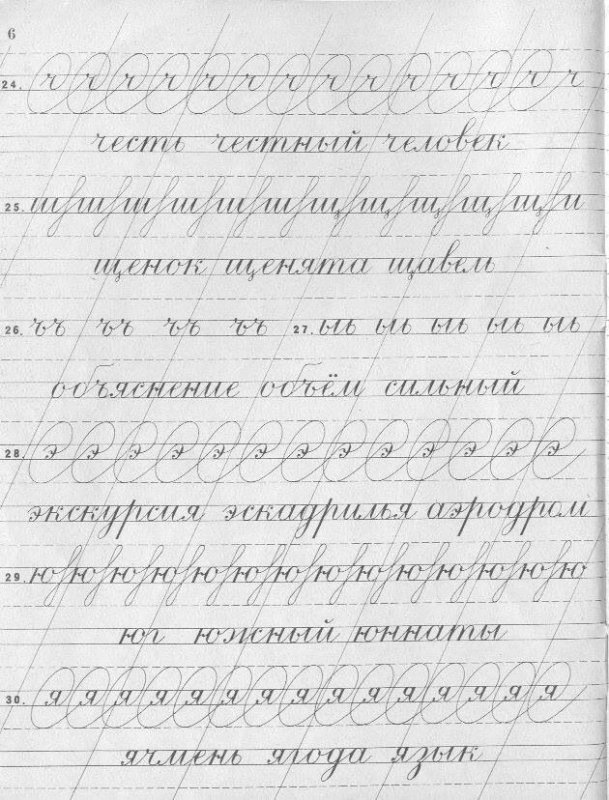 6
24. ч ч ч ч ч ч ч ч ч ч ч ч ч ч
честь честный человек
25. шшшшшшщщщщщи
щенок щенята щавель
26. ъъ ъъ ъъ ъъ 27. ыь ыь ыь ыь ыь
объяснение объём сильный
28. э э э э э э э э э э э э э
экскурсия эскадрилья аэродром
29. ю ю ю ю ю ю ю ю ю ю ю ю ю ю
юг южный юннаты
30. я я я я я я я я я я я я я я
ячмень ягода язык